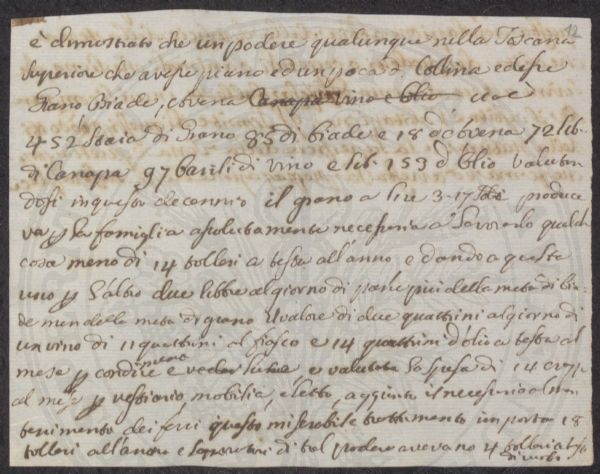 12
è dimostrato che un podere qualunque nella Toscana
superiore che avesse piano ed un poca di Collina e desse
Grano, Biade, e Canapa vino e olio cioè
452 staia di Grano 85 di biade e 18 d' 72 lib.
di Canapa 97 barili di vino e lib. 153 d'olio valutan
dosi in questo decennio il grano a lire 3.17 produce
va p la famiglia assolutamente necessaria a lavorarlo qualche
cosa meno di 14 tolleri a testa all'anno e dando a questa
uno p l'altro due libbre al giorno di pane più della metà di bia
de men della metà di grano il valore di due quattrini al giorno di
un vino di 11 quattrini al fiasco e 14 quattrini d'olio a testa al
mese p condire e lume e valutata la spesa di 14
al mese p vestiario, mobilia, e letto, aggiunto il necessario al man
tenimento dei ferri questo miserabile trattamento importa 18
tolleri all'anno e di tal podere avevano 4 tolleri a testa